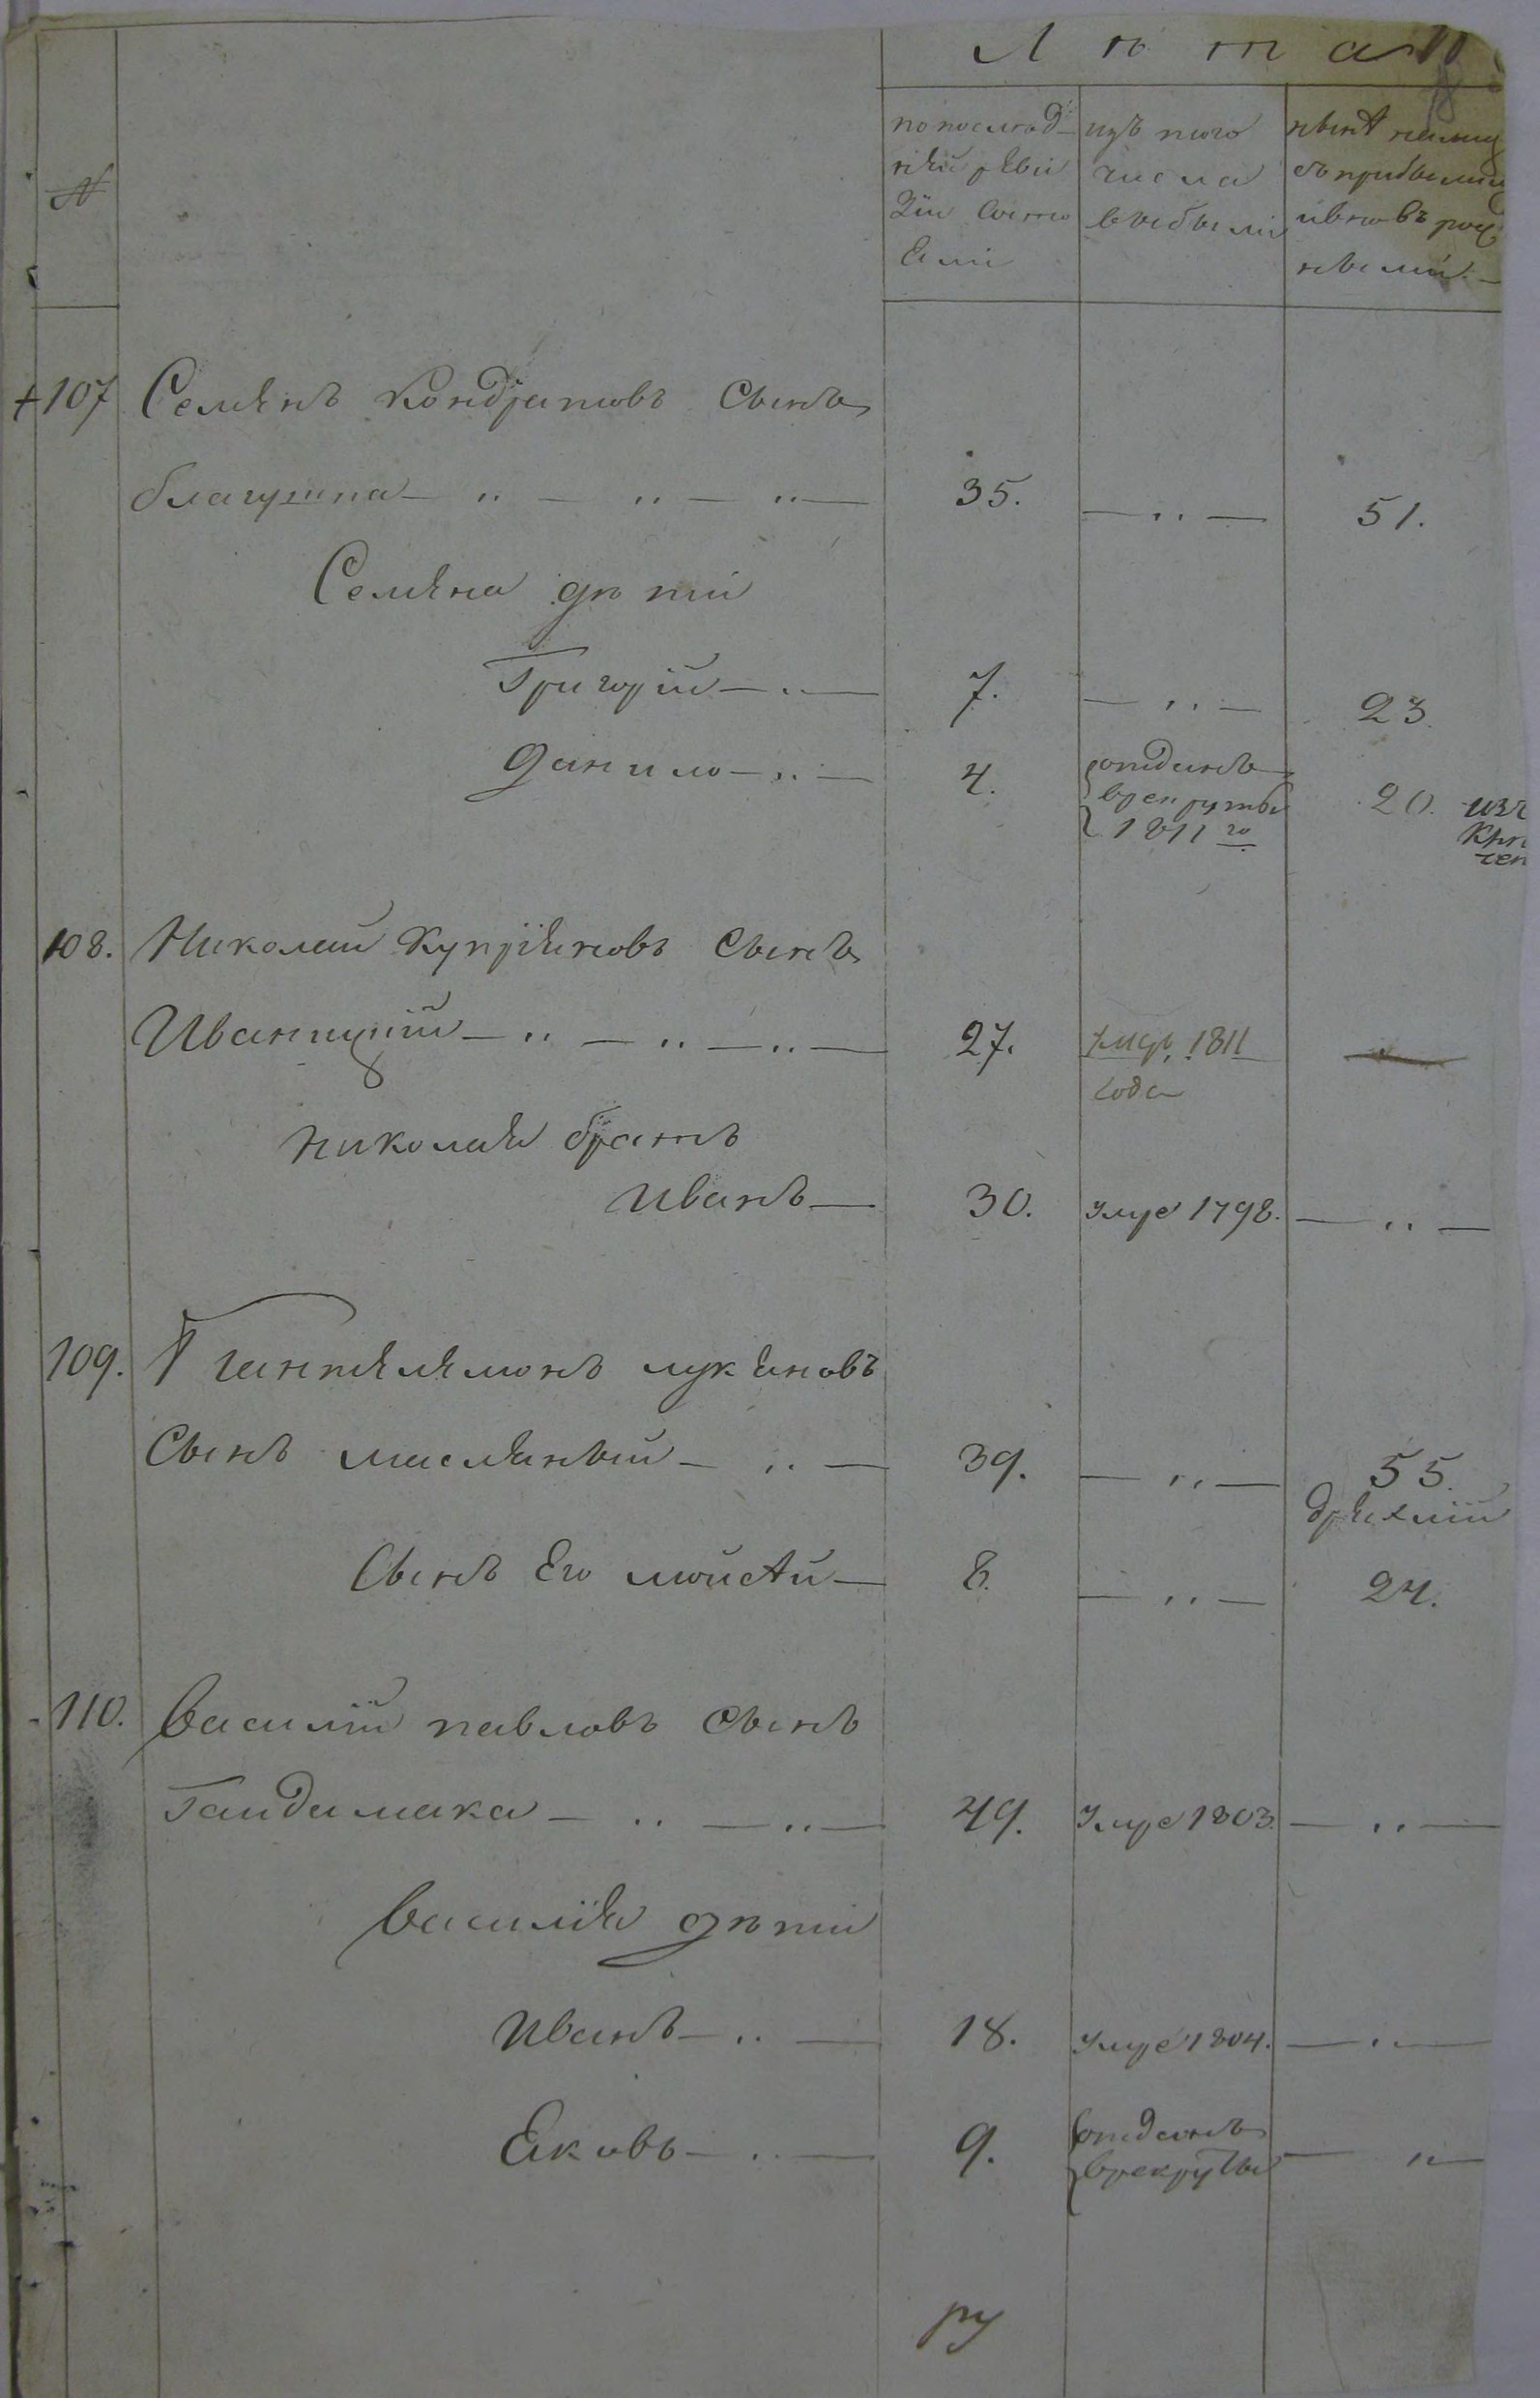 Лѣта
№
по послѣд-
ней реви
зіи состо
яли
изъ того
числа
выбыли
нынѣ на лиц
съ прибылим
и вновь рож
ными.
107 Семенъ Кондратовъ сынъ
благушпа 35. 51.
Семена дѣти
Григорій 7. 23.
Данило 4. отданъ 20. изъ
врекруты
1811го
108. Николай Купріяновъ сынъ
Иваницкій 27. умре 1811
года
Николая братъ
Иванъ 30. умре 1798.
109. Пантелемонъ лукяновъ
сынъ масляный 39. 55.
дряхлій
сынъ Его моисѣй 8. 24.
110. Василій павловъ сынъ
Гайдамака 49. умре 1803.
Василія дѣти
Иванъ 18. умре 1804.
Яковъ 9. отданъ
врекруты
ру